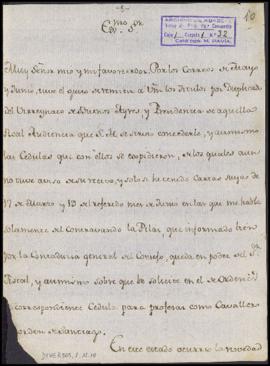 10
Exmo. Sr.
Muy Señor mio y mi favorecedor. Por los Correos de Mayo
y Junio, tuve el gusto de remitir a Vm. los titulos por Duplicado
del Virreynato de Buenos Ayres, y Presidencia de aquella
Real Audiencia que S.M. se sirvio concederle, y asimismo
las Cedulas que con ellos se expidieron, de los quales aun
no tuve aviso de su recivo, y solo si he tenido Cartas suyas de
17 de Marzo y 13 del referido mes de Junio en las que me habla
solamente del Contravando la Pilar, que informado bien
por la Contaduria general del Consejo, queda en poder del Sor.
Fiscal, y asimismo sobre que se solicite en el de Ordenes
correspondiente Cedula para profesar como Cavallero
orden de Santiago.
En este estado ocurrio la novedad
DIVERSOS, 1, 32, 10